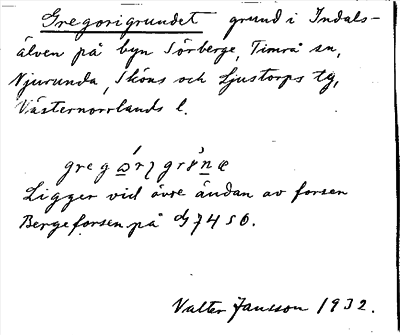 Gregorigrundet grund i Indals-
älven på byn Sörberge, Timrå sn,
Njurunda, Sköns och Ljustorps tg,
Västernorrlands l.
Ligger vid övre ändan av forsen
Bergeforsen på
Valter Jansson 1932.